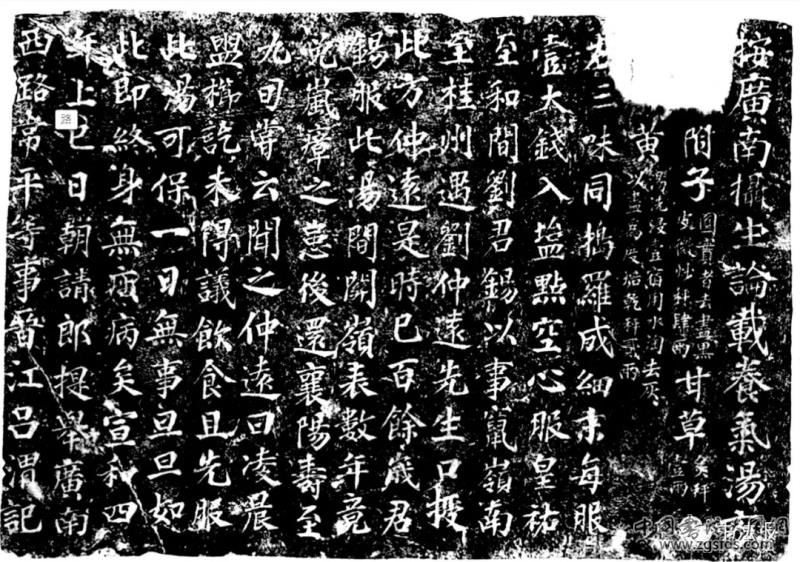 按廣南攝生論載養氣湯方
附子圓實者去盡黑皮微炒秤肆兩甘草炙秤壹兩
黃湯洗浸壹宿用水淘去灰以盡為度焙乾秤貳兩
右三味同搗羅成細末每服
壹大錢入鹽點空心服皇祐
至和間劉君錫以事竄嶺南
至桂州遇劉仲遠先生口授
此方仲遠是時已百餘歲君
錫服此湯間關嶺表數年竟
免嵐瘴之恙後還襄陽壽至
九旬嘗云聞之仲遠曰凌晨
盥櫛訖未得議飲食且先服
此湯可保一日無事旦旦如
此即終身無疾病矣宣和四
年上巳日朝請郎提舉廣南
西路常平等事晉江呂渭記
路